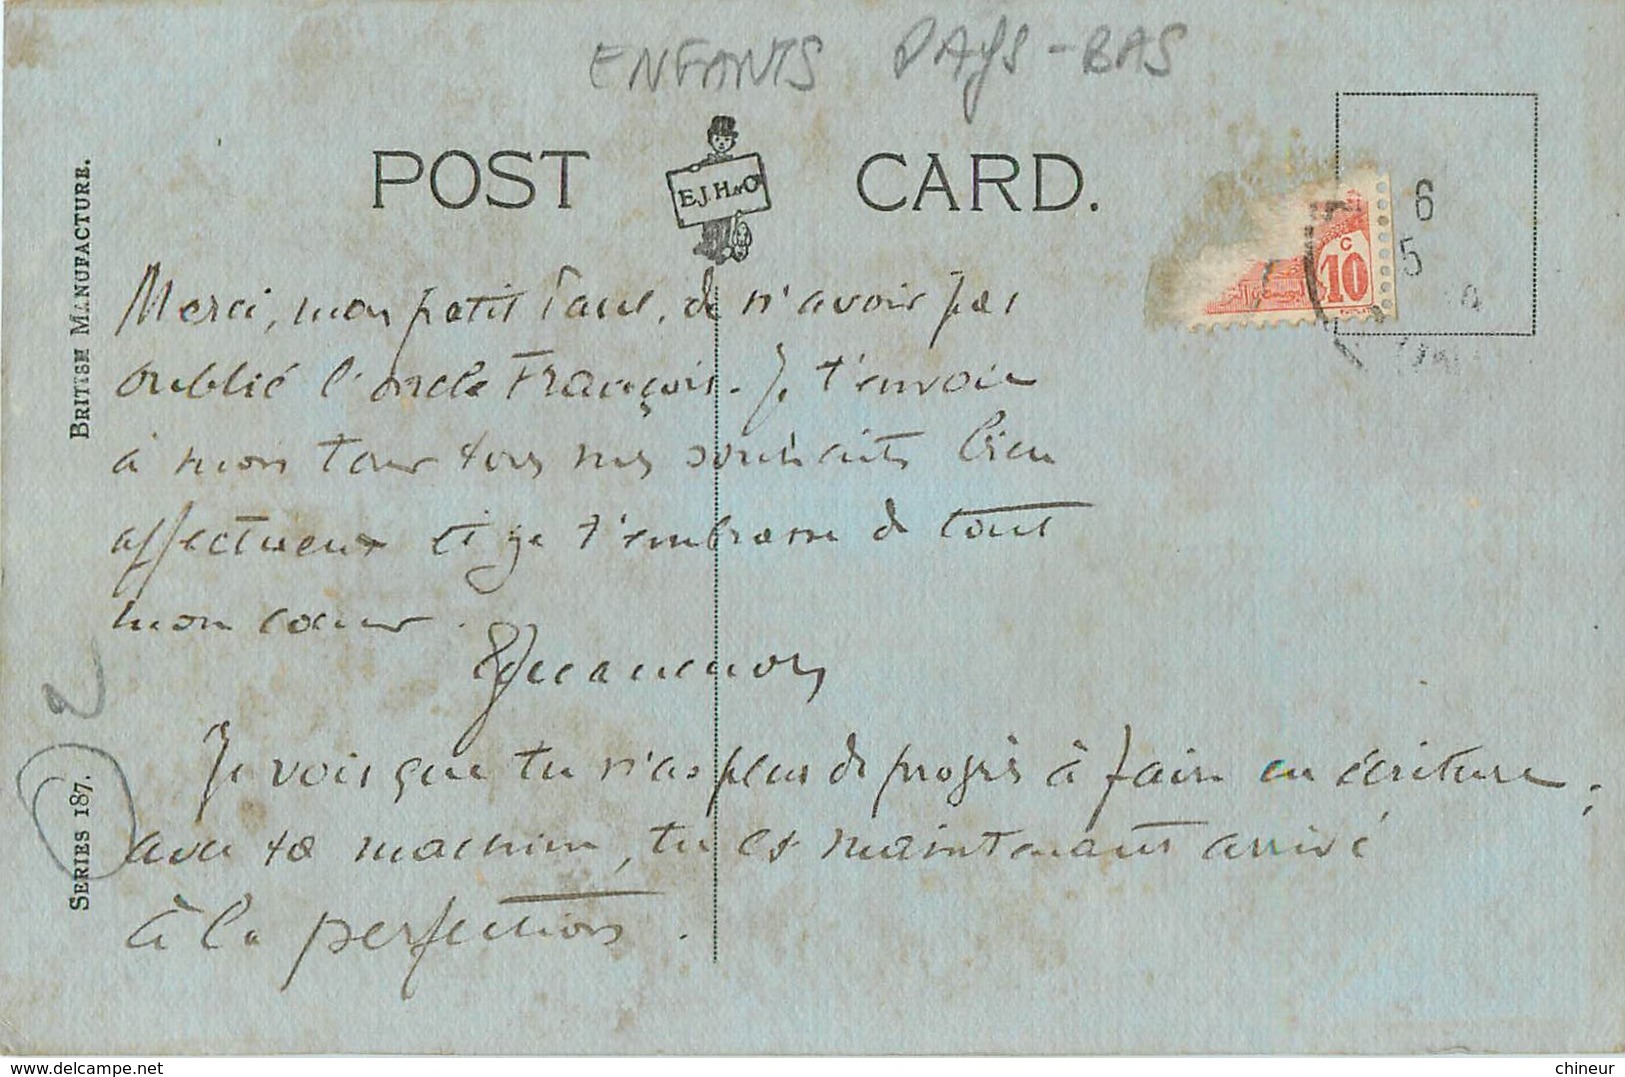 ENFANTS PAYS-BAS
POST CARD.
E.J.H.&Co
BRITISH MANUFACTURE.
C
10
6
5
Merci, mon petit Paul, de n'avoir pas
oublié l'oncle François. Je t'envoie
à mon tour tous mes souhaits bien
affectueux et je t'embrasse de tout
mon cœur.
Je vois que tu n'as plus de progrès à faire en écriture ;
avec ta machine, tu es maintenant arrivé
à la perfection.
2
SERIES 187.
www.delcampe.net
chineur